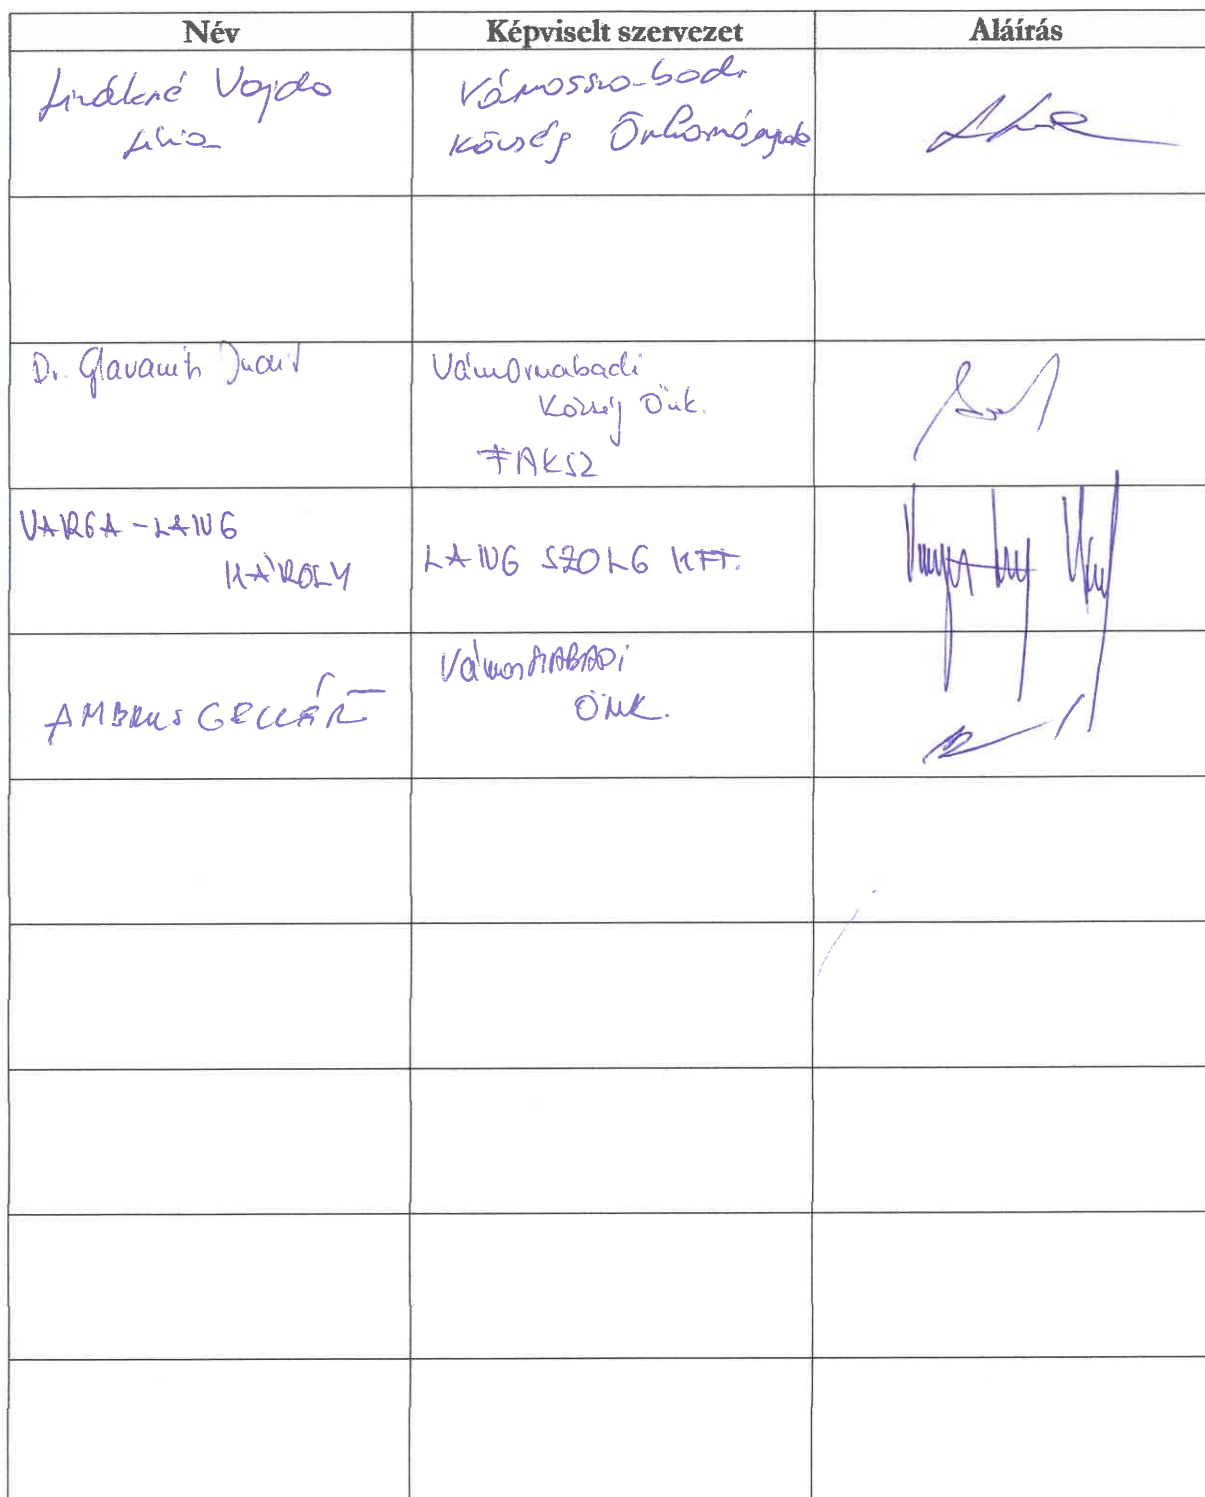 Név Képviselt szervezet Aláírás
Vajda
Lívia
Vámosszabadi
Község Önkormányzata
Dr. Glavanits Judit
Vámosszabadi
Község Önk.
FAKSZ
VARGA-LANG
KÁROLY
LANG SZOLG KFT.
AMBRUS GELLÉRT
Vámosszabadi
ÖNK.